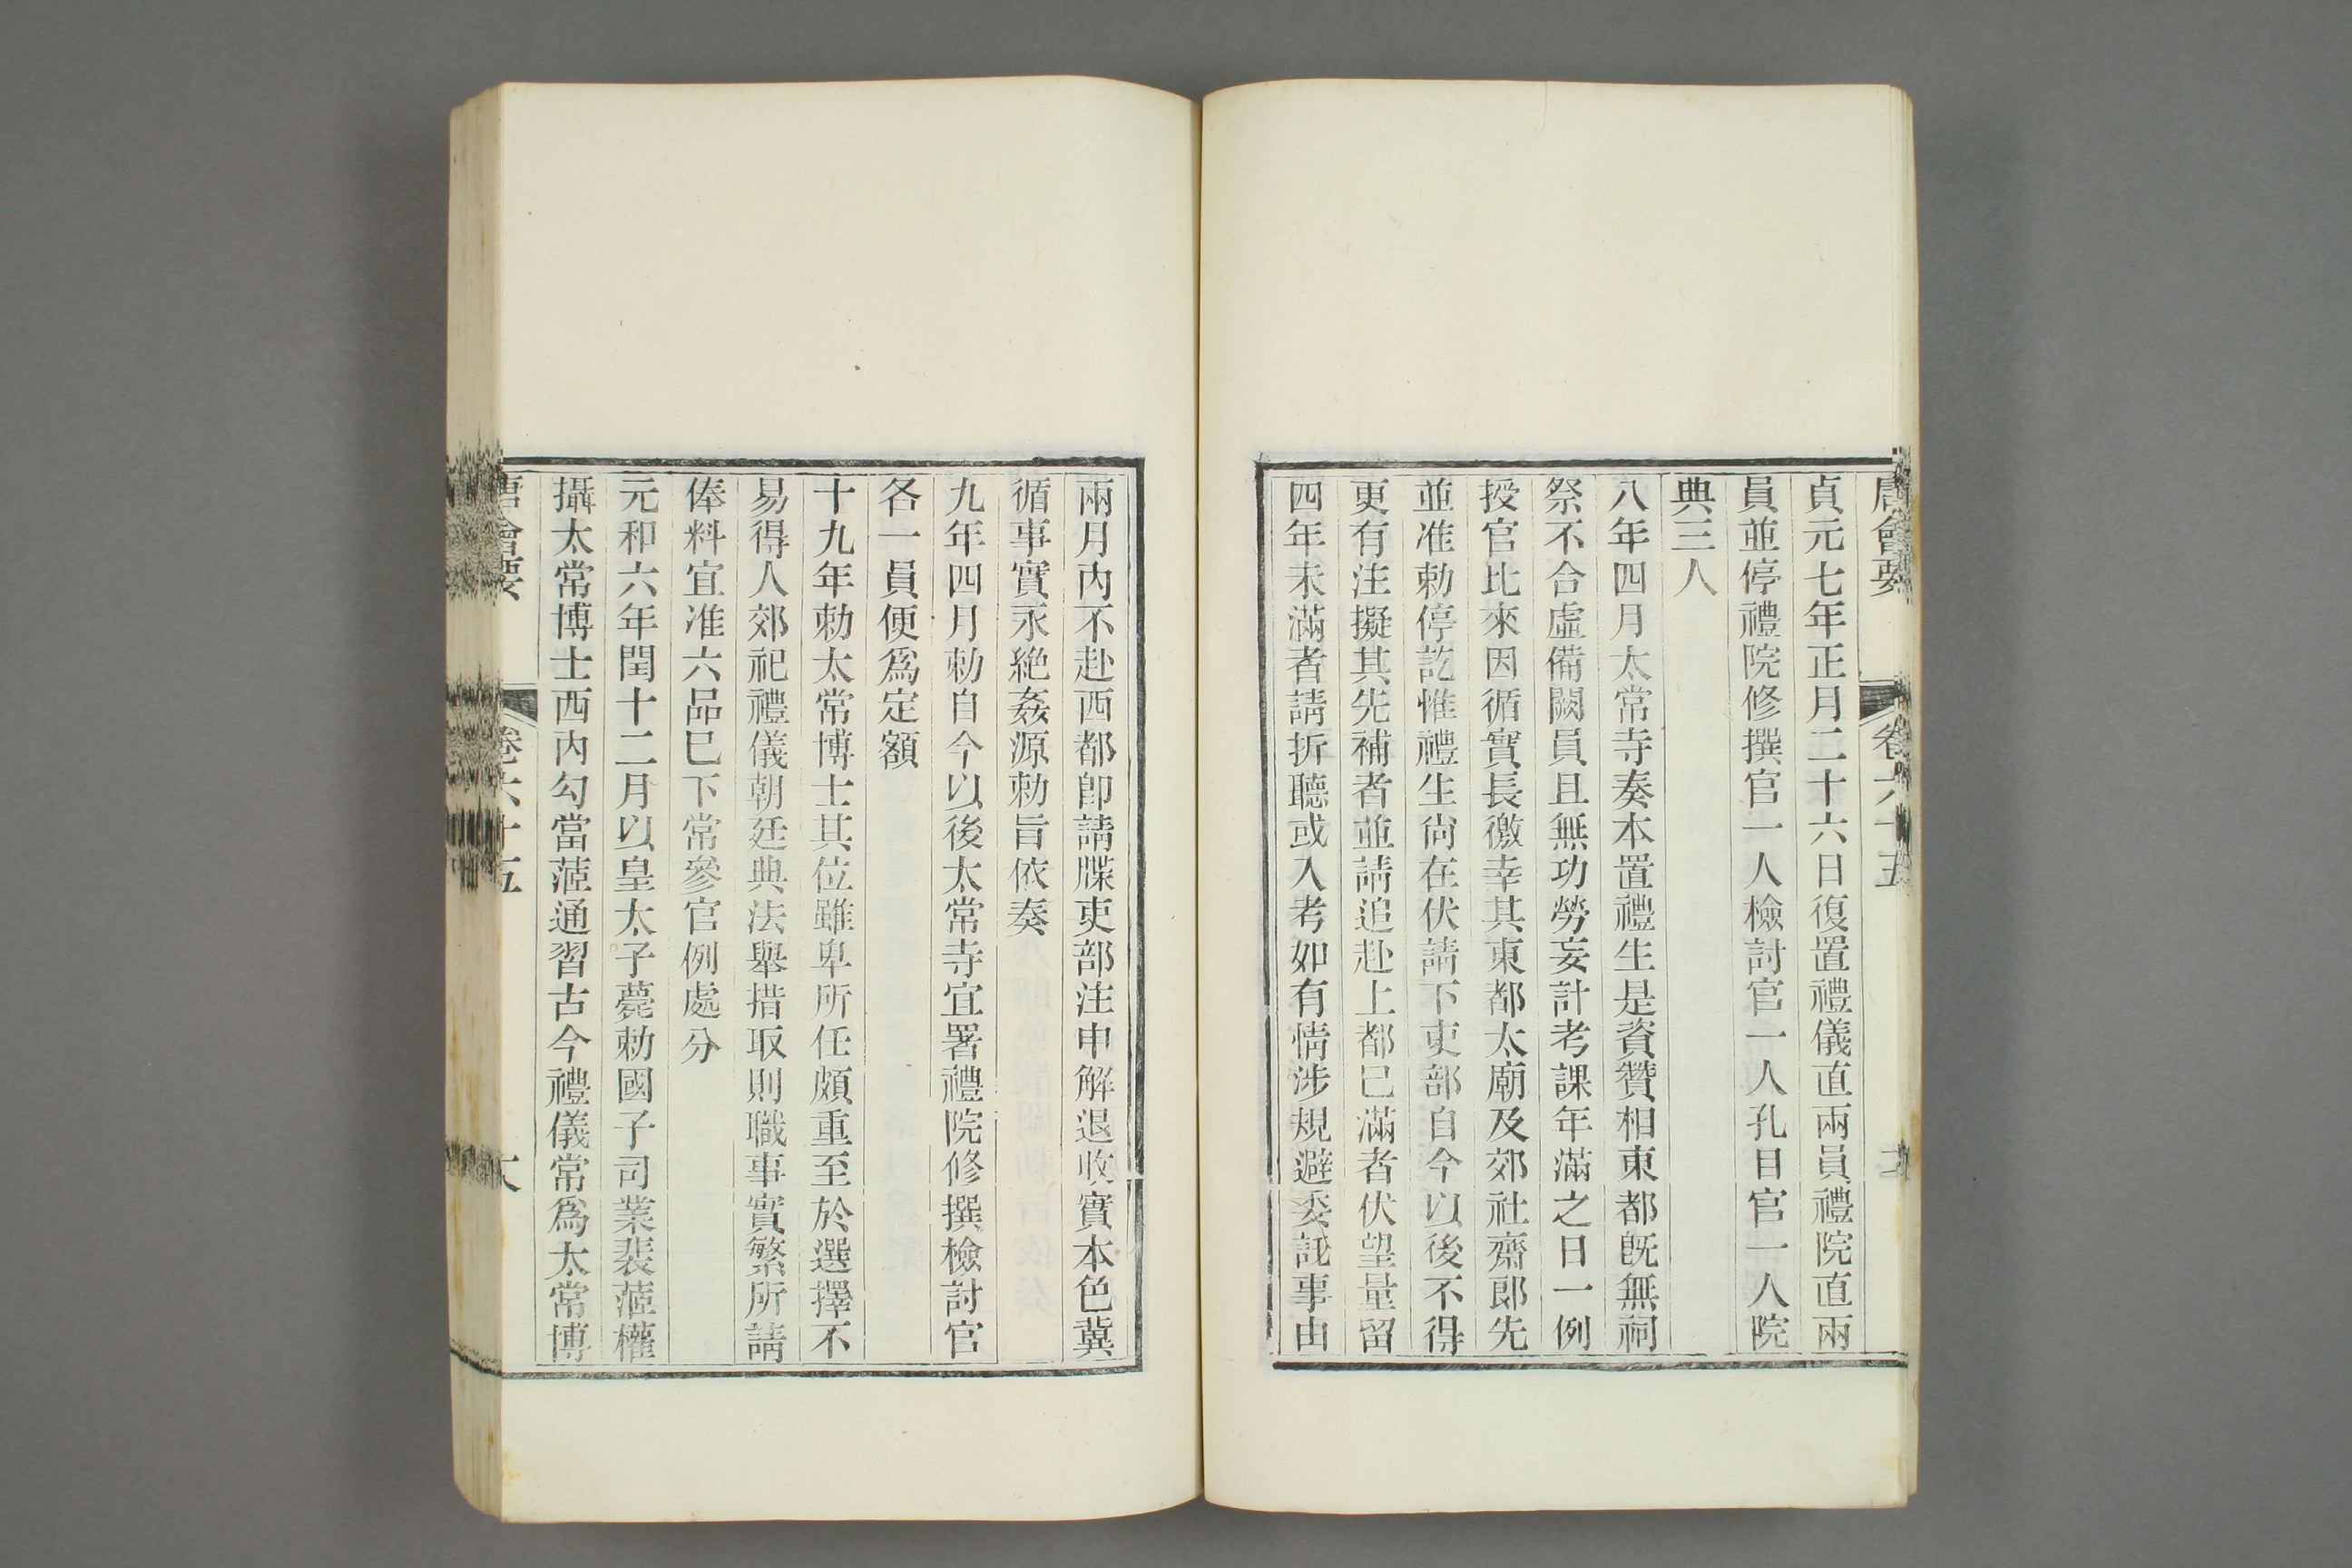 唐會要 卷六十五
貞元七年正月二十六日復置禮儀直兩員禮院直兩
員並停禮院修撰官一人檢討官一人孔目官一人院
典三人
八年四月太常寺奏本置禮生是資贊相東都旣無祠
祭不合虛備闕員且無功勞妄計考課年滿之日一例
授官比來因循實長徼幸其東都太廟及郊社齋郞先
並准勅停訖惟禮生尙在伏請下吏部自今以後不得
更有注擬其先補者並請追赴上都已滿者伏望量留
四年未滿者請折聽或入考如有情涉規避委託事由
兩月內不赴西都卽請牒吏部注申解退收實本色冀
循事實永絕姦源勅旨依奏
九年四月勅自今以後太常寺宜署禮院修撰檢討官
各一員便爲定額
十九年勅太常博士其位雖卑所任頗重至於選擇不
易得人郊祀禮儀朝廷典法舉措取則職事實繁所請
俸料宜准六品已下常參官例處分
元和六年閏十二月以皇太子薨勅國子司業裴蒞權
攝太常博士西內勾當蒞通習古今禮儀常爲太常博
唐會要 卷六十五